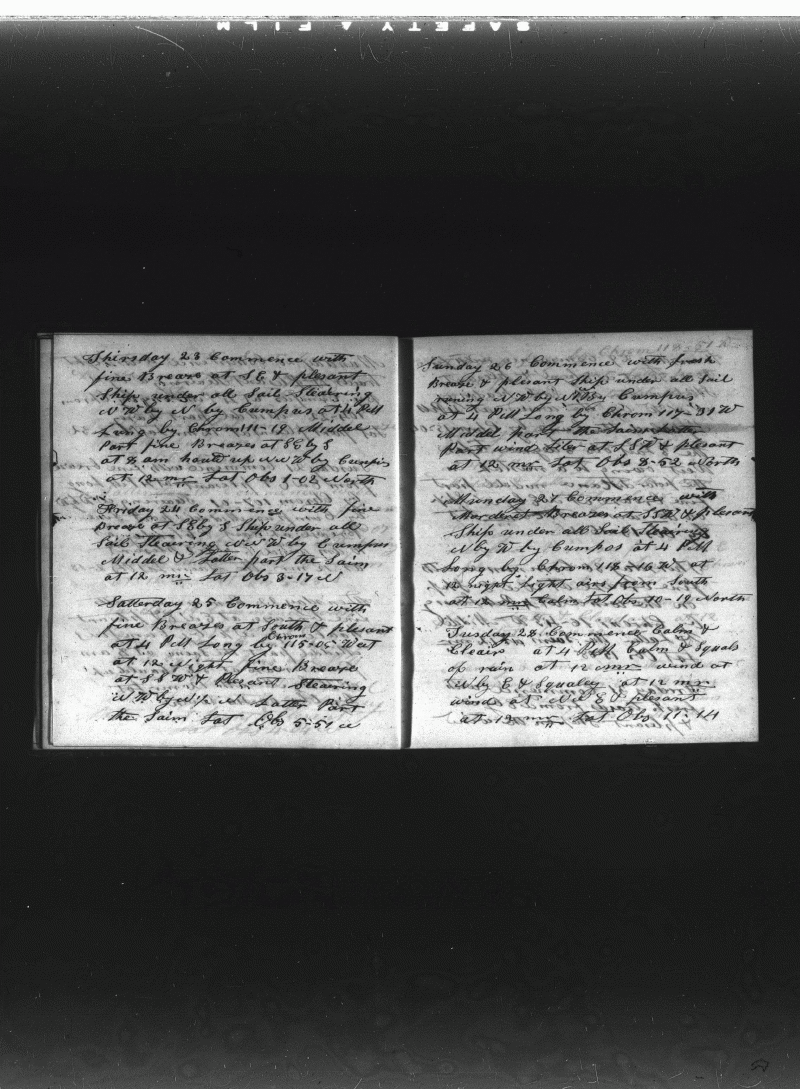 SAFETY FILM
Thirsday 23 Commence with
fine Breaze at SE & plesant
Ship under all Sail Stearing
NW by N by Cumpus at 4 PM
Long by Chrom 111-18 Middel
Part fine Breazes at SE by S
at 8 am hauld up NNW by Cumpus
at 12 mr Lat Obs 1-02 North
Friday 24 Commence with fine
Breaze at SE by S Ship under all
Sail Stearing NNW by Cumpus
Middel & Latter part the Saim
at 12 mr Lat Obs 3-17 N
Satterday 25 Commence with
fine Breazes at South & plesant
at 4 PM Long by Chrom 115-05 West
at 12 Night fine Breaze
at SSW & Plesant Stearing
NW by N Latter Part
the Saim Lat Obs 5-51 N
Sunday 26 Commence with fresh
Breaze & plesant Ship under all Sail
runing NW by N by Cumpus
at 4 PM Long by Chrom 117-31 W
Middel part the Saim latter
part wind at SSW & plesant
at 12 mr Lat Obs 8-52 North
Munday 27 Commence with
Breazes at SSW & plesant
Ship under all Sail Stearing
N by W by Cumpos at 4 PM
Long by Chrom 118-16 W at
12 night Light airs from South
at 12 mr Calm Lat Obs 10-19 North
Tusday 28 Commence Calm &
Cleair at 4 PM Calm & Squals
of rain at 12 wind at
N by E & Squaley at 12 mr
wind at NNE & plesant
at 12 mr Lat Obs 11-14